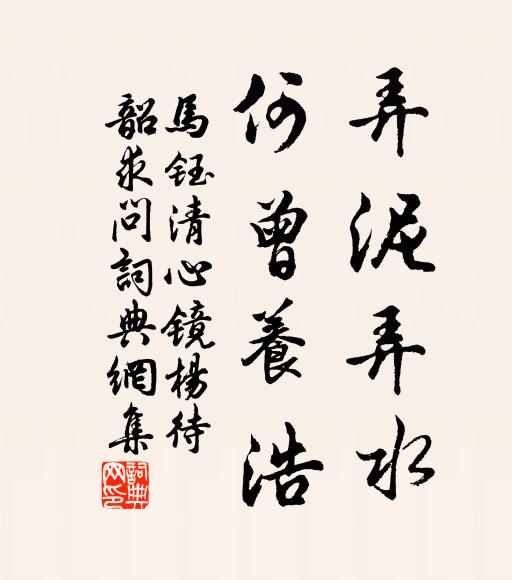 弄泥弄水
何曾養浩
馬鈺清心鏡楊待
韶求問詞典網集
詞典
网印